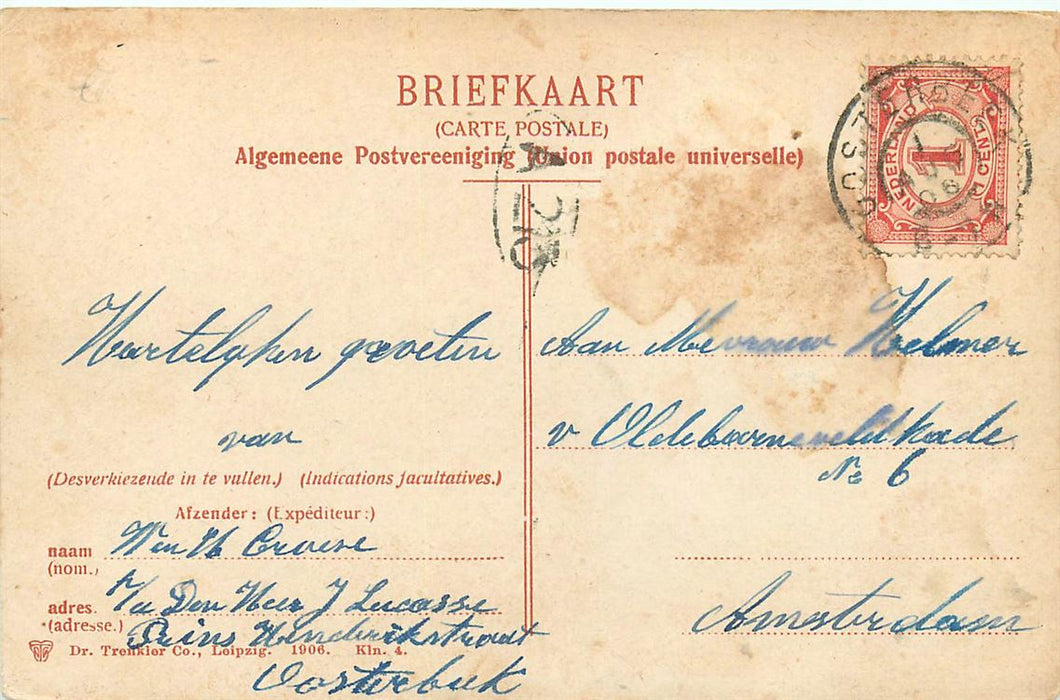 BRIEFKAART
(CARTE POSTALE)
Algemeene Postvereeniging (Union postale universelle)
OOSTERBEEK
NEDERLAND
1
1 CENT
Hartelyken groeten
van
(Desverkiezende in te vullen.) (Indications facultatives.)
Afzender: (Expéditeur:)
naam
(nom.)
adres.
(adresse.)
Den Heer J Lucasse
Prins Hendrikstraat
Oosterbeek
Dr. Trenkler Co., Leipzig. 1906. Kln. 4.
Aan Mevrouw Helmer
v Oldebarneveldtkade
No 6
Amsterdam